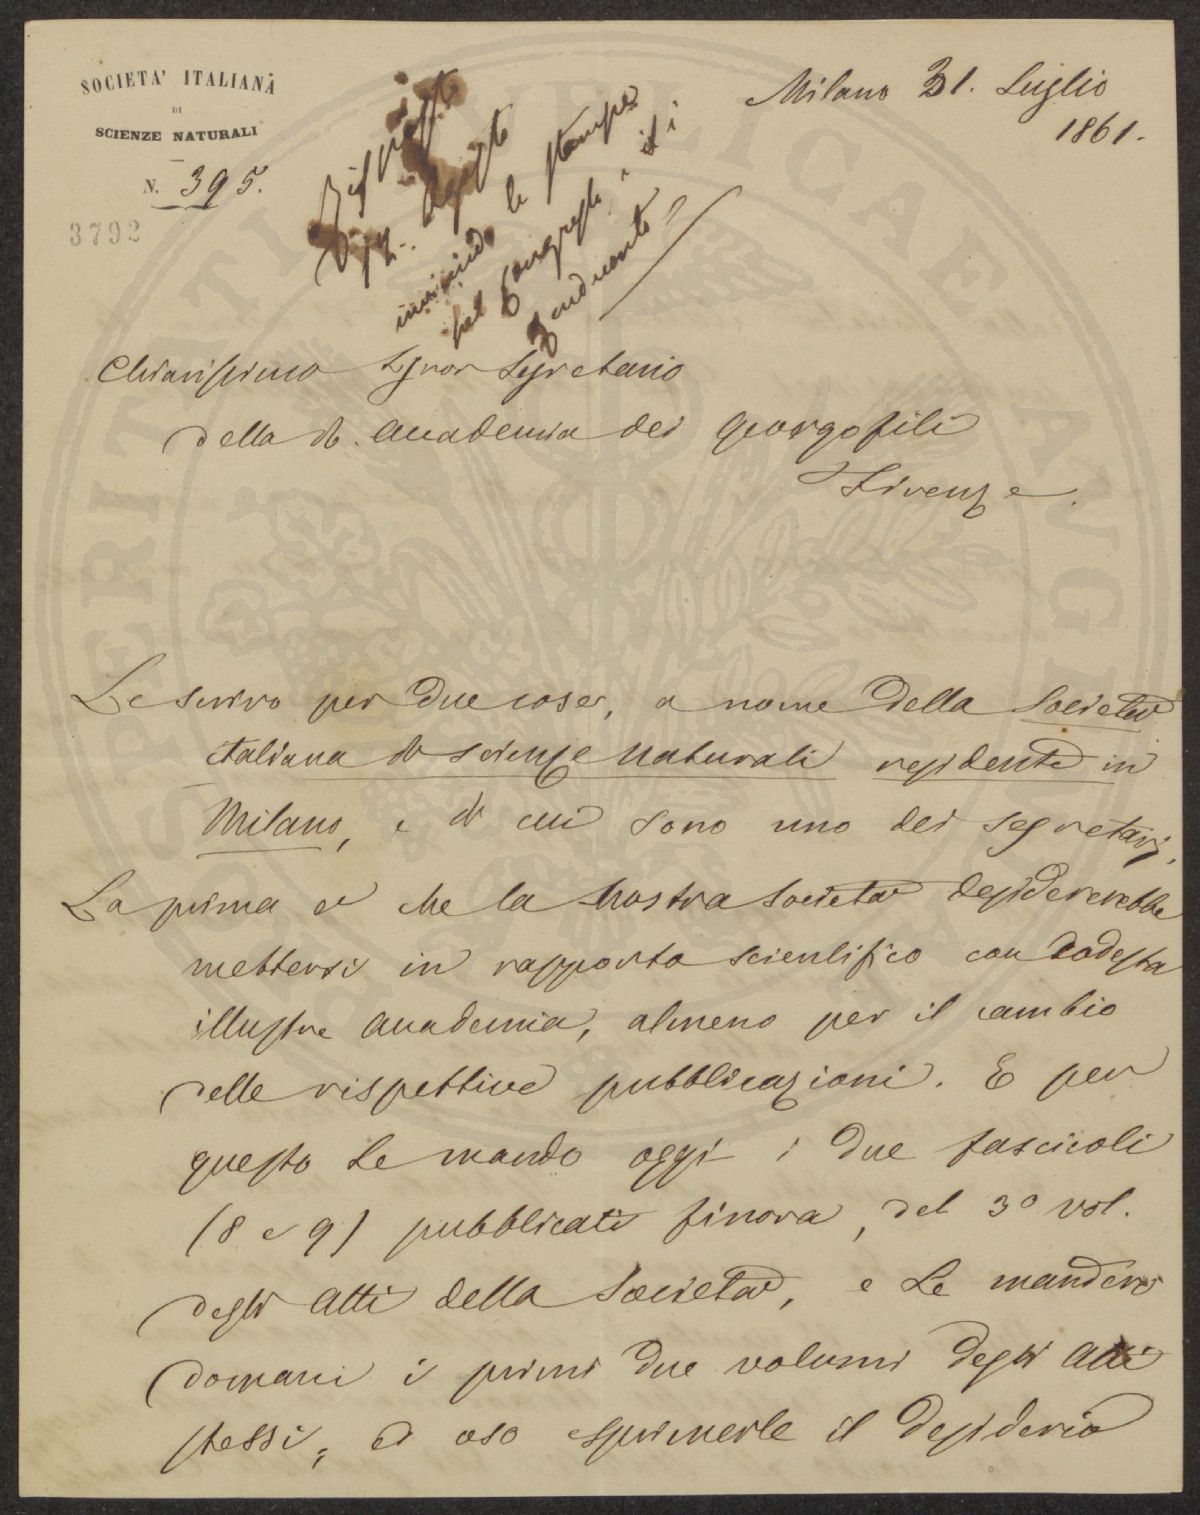 SOCIETA' ITALIANA
DI
SCIENZE NATURALI
N. 395.
3792
Milano 31. Luglio
1861.
Agosto
le stampe
Chiarissimo Signor Segretario
della R. Accademia dei Georgofili
Firenze.
Le scrivo per due cose, a nome della Società
italiana di scienze naturali residente in
Milano, e di cui sono uno dei segretarj.
La prima è che la nostra Società desidererebbe
mettersi in rapporto scientifico con codesta
illustre Accademia, almeno per il cambio
delle rispettive pubblicazioni. E per
questo Le mando oggi i due fascicoli
(8 e 9) pubblicati finora, del 3° vol.
degli Atti della Società, e Le manderò
domani i primi due volumi degli Atti
stessi, ed oso esprimerle il desiderio